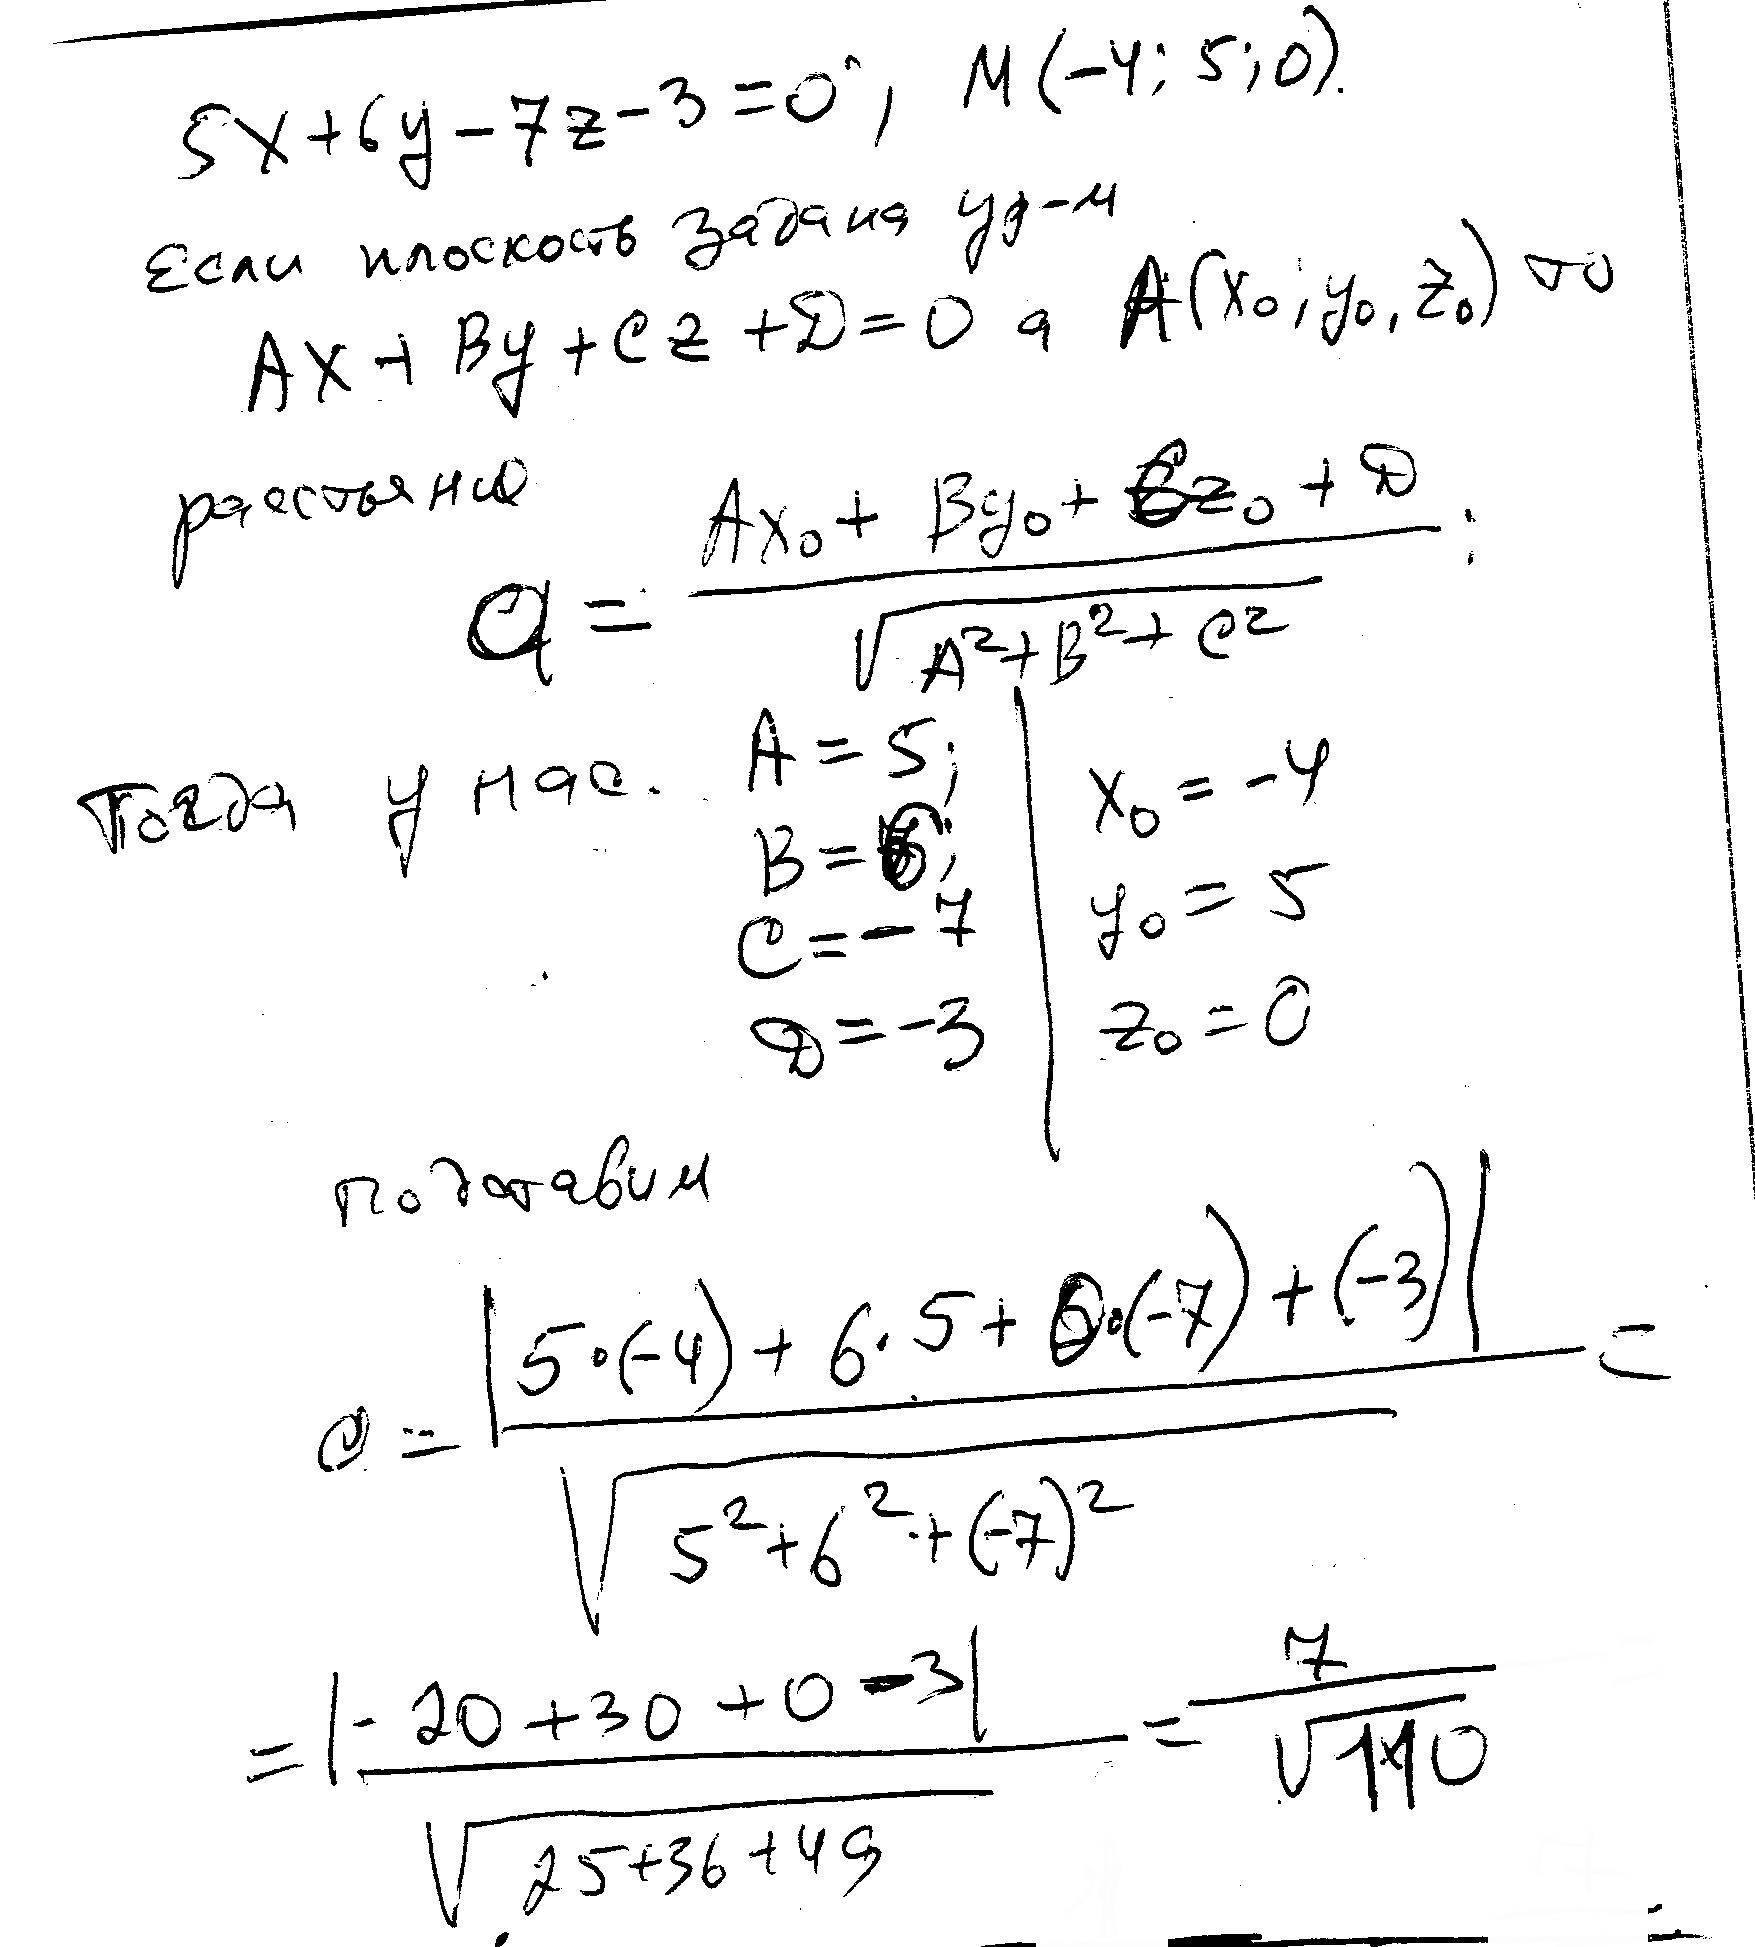 5x+6y-7z-3=0, M(-4; 5; 0).
Если плоскость задана ур-м
Ax+By+Cz+D=0 а A(x₀; y₀, z₀) то
расстояние
d = (Ax₀ + By₀ + Cz₀ + D) / √(A²+B²+C²) ;
Тогда у нас. A = 5; x₀ = -4
B = 6; y₀ = 5
C = -7 z₀ = 0
D = -3
подставим
d = |5·(-4) + 6·5 + 0·(-7) + (-3)| / √(5²+6²+(-7)²) =
= |-20+30+0-3| / √(25+36+49) = 7 / √110